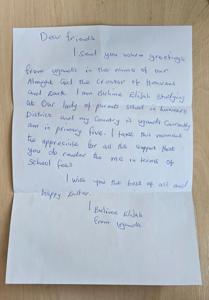 Dear friends
I send you warm greetings
from uganda in the names of our
Almighty God the Creator of Heavens
and earth. I am Elijah studying
at Our lady of parents school in
District and my Country is uganda Currently
am in primary five. I take this moment
to appreciate for all the support that
you do render to me in terms of
school fees
I wish you the best of all and
happy Easter.
I Elijah
from uganda.